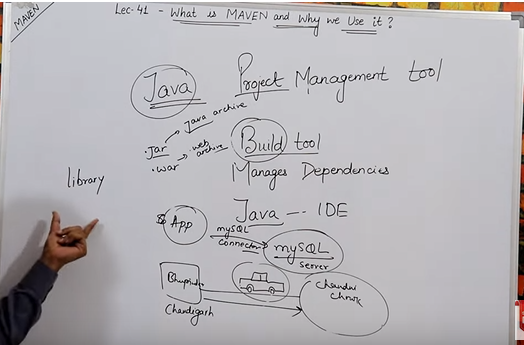 MAVEN
Lec-41 - What is MAVEN and Why we Use it?
Java
Project Management tool
.Jar → Java archive
.war → web archive
Build tool
Manages Dependencies
library
Java --- IDE
App
mySQL connector
mySQL server
Chandigarh
Chandni Chowk